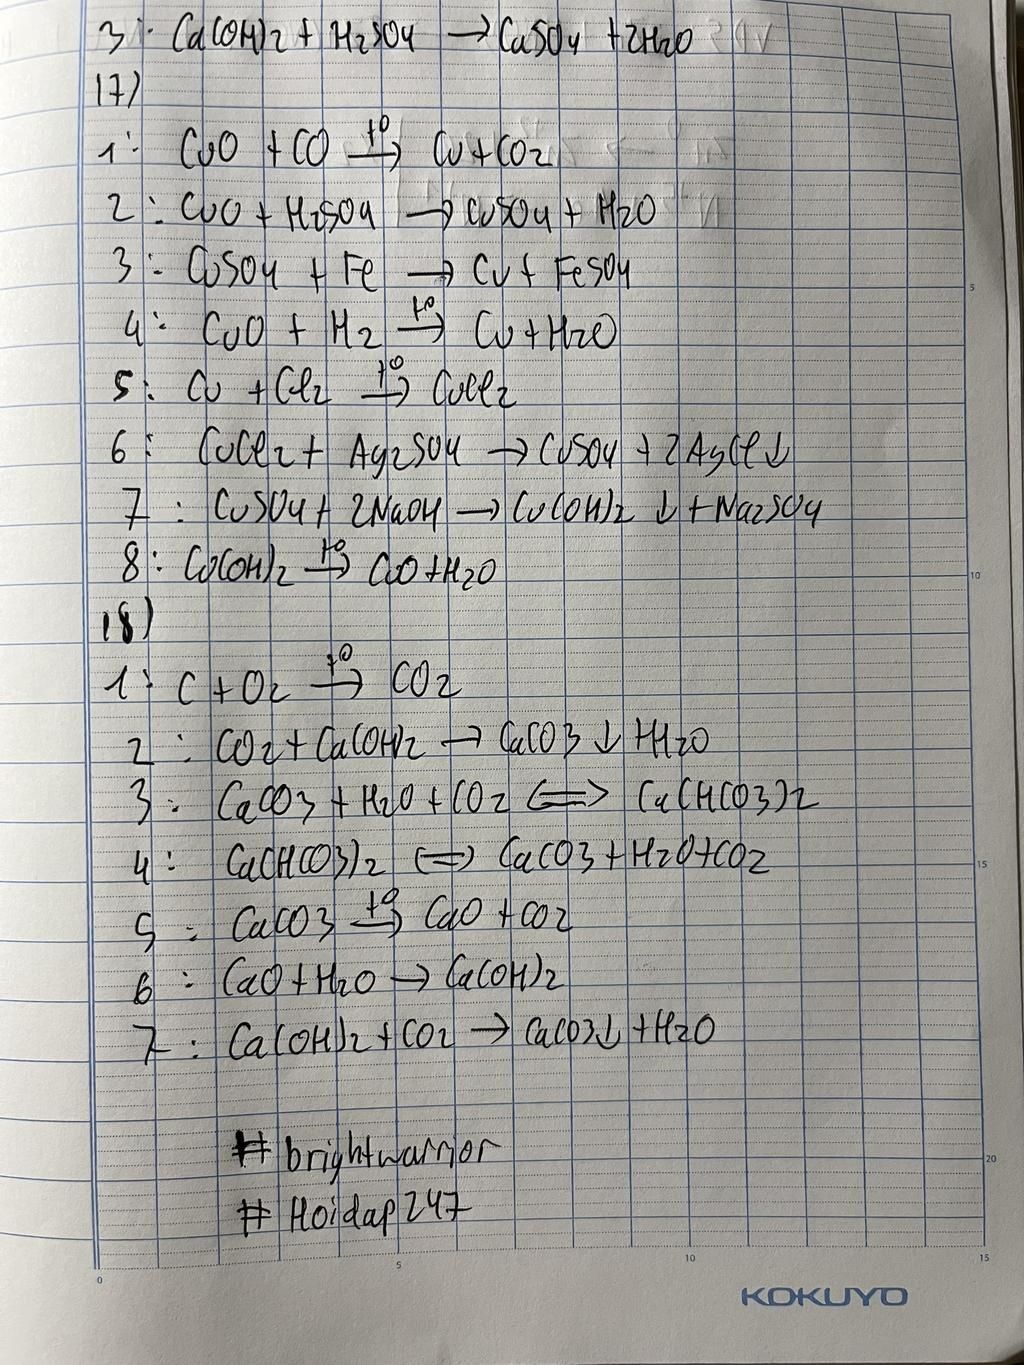 3: Ca(OH)2 + H2SO4 → CaSO4 + 2H2O
17)
1: CuO + CO t°→ Cu + CO2
2: CuO + H2SO4 → CuSO4 + H2O
3: CuSO4 + Fe → Cu + FeSO4
4: CuO + H2 t°→ Cu + H2O
5: Cu + Cl2 t°→ CuCl2
6: CuCl2 + Ag2SO4 → CuSO4 + 2AgCl↓
7: CuSO4 + 2NaOH → Cu(OH)2 ↓ + Na2SO4
8: Cu(OH)2 t°→ CuO + H2O
18)
1: C + O2 t°→ CO2
2: CO2 + Ca(OH)2 → CaCO3 ↓ + H2O
3: CaCO3 + H2O + CO2 ⇔ Ca(HCO3)2
4: Ca(HCO3)2 ⇔ CaCO3 + H2O + CO2
5: CaCO3 t°→ CaO + CO2
6: CaO + H2O → Ca(OH)2
7: Ca(OH)2 + CO2 → CaCO3↓ + H2O
# brightwarrior
# Hoidap247
5
10
15
20
0 5 10 15
KOKUYO